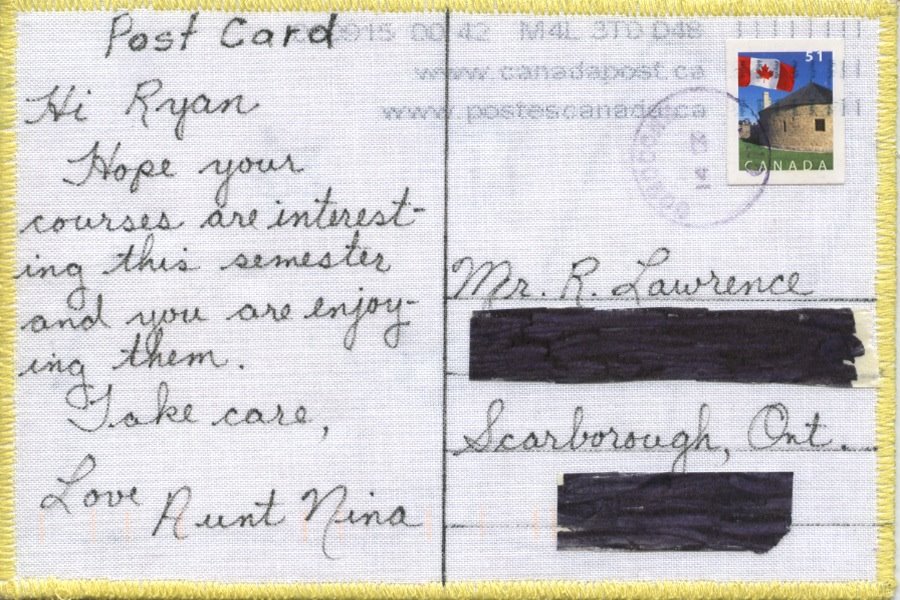 Post Card
Hi Ryan
Hope your
courses are interest-
ing this semester
and you are enjoy-
ing them.
Take care,
Love Aunt Nina
0915 00:42 M4L 3T0 D48
www.canadapost.ca
www.postescanada.ca
51
CANADA
Mr. R. Lawrence
Scarborough, Ont.